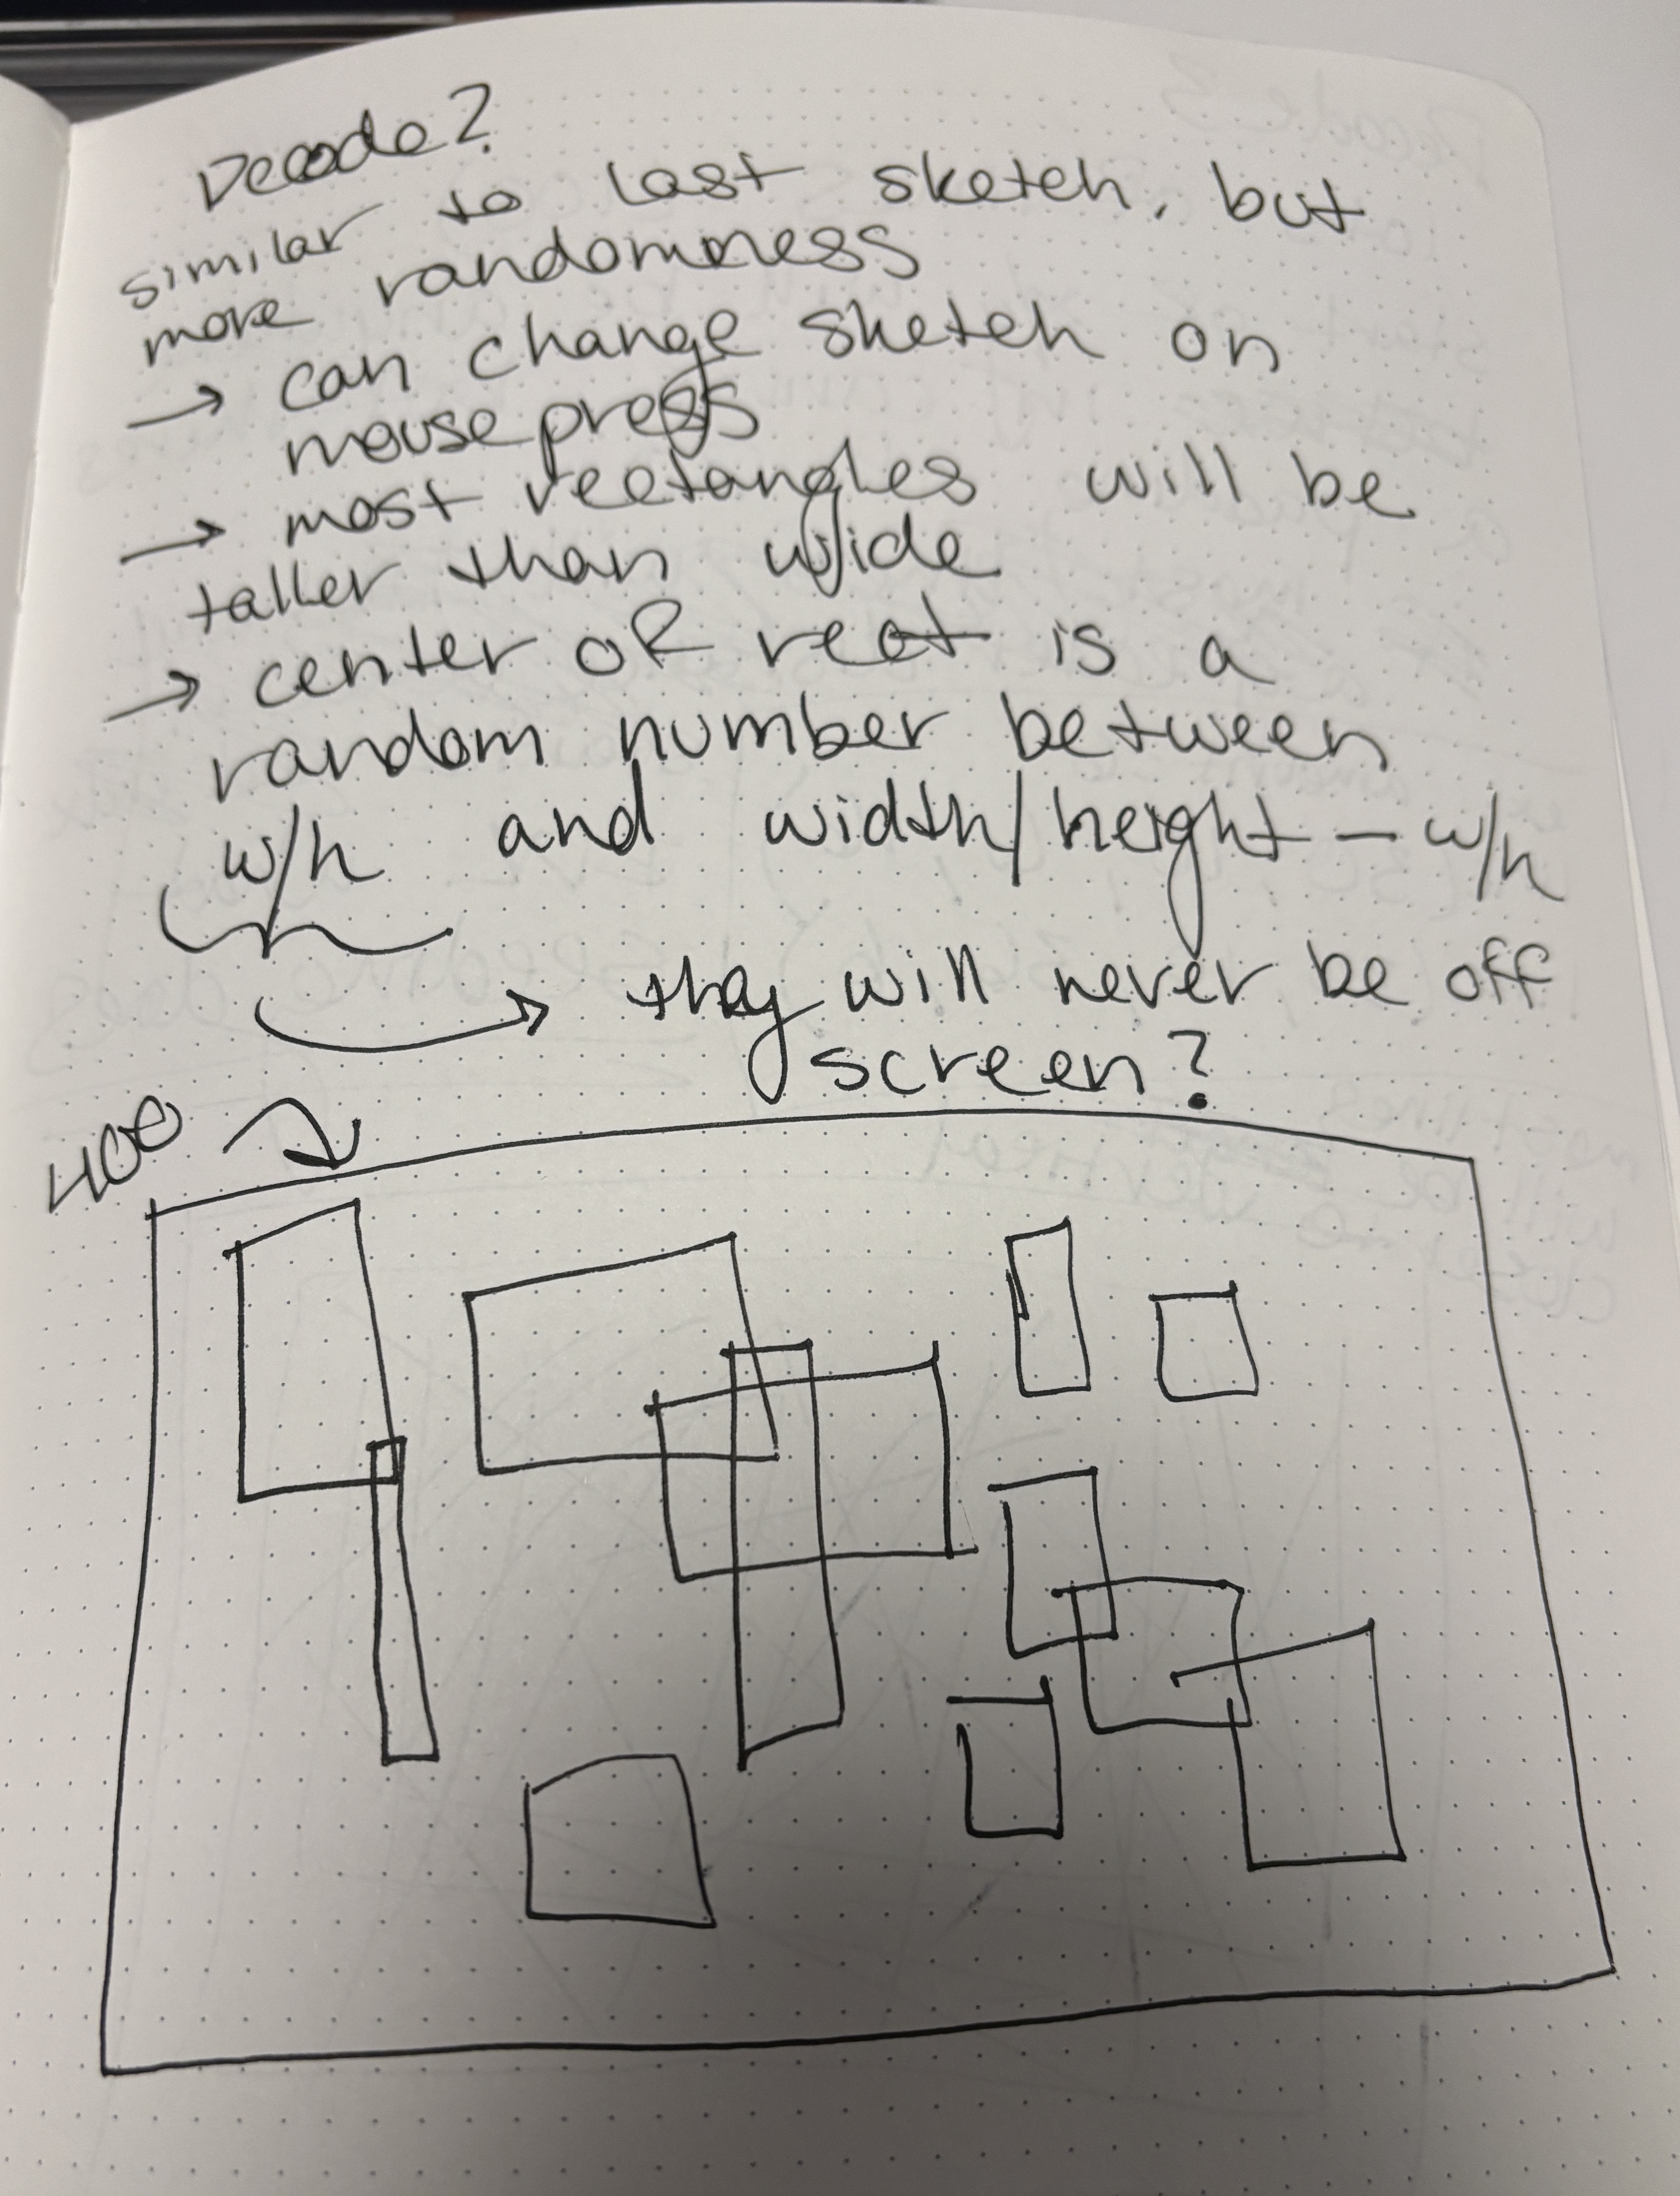 Decode 2
similar to last sketch, but
more randomness
→ can change sketch on
mouse press
→ most rectangles will be
taller than wide
→ center OR rect is a
random number between
w/h and width/height - w/h
→ they will never be off
screen?
400